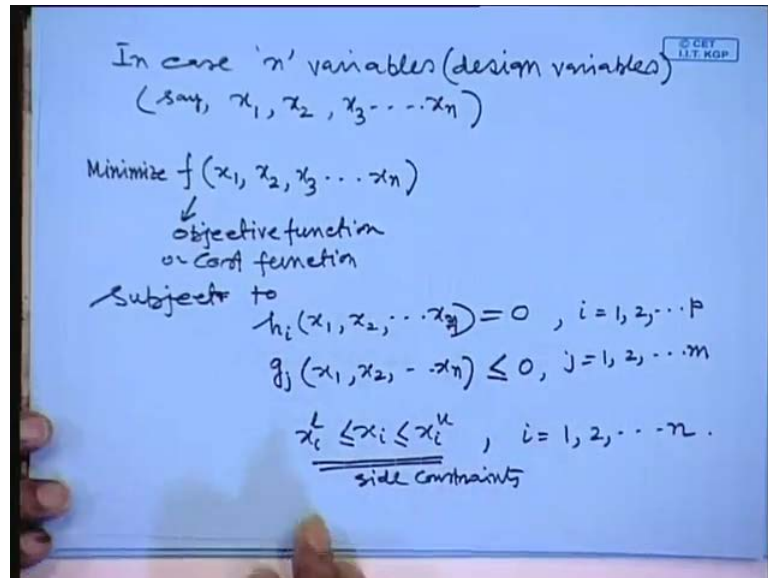 © CET
I.I.T. KGP
In case 'n' variables (design variables)
(say, x₁, x₂, x₃ ----- xₙ)
Minimize f (x₁, x₂, x₃ ... xₙ)
↓
objective function
or Cost function
Subject to
hᵢ (x₁, x₂, ... xₙ) = 0 , i = 1, 2, ... p
gⱼ (x₁, x₂, - .. xₙ) ≤ 0, j = 1, 2, ... m
xᵢᴸ ≤ xᵢ ≤ xᵢᵘ , i = 1, 2, ... n .
side constraints